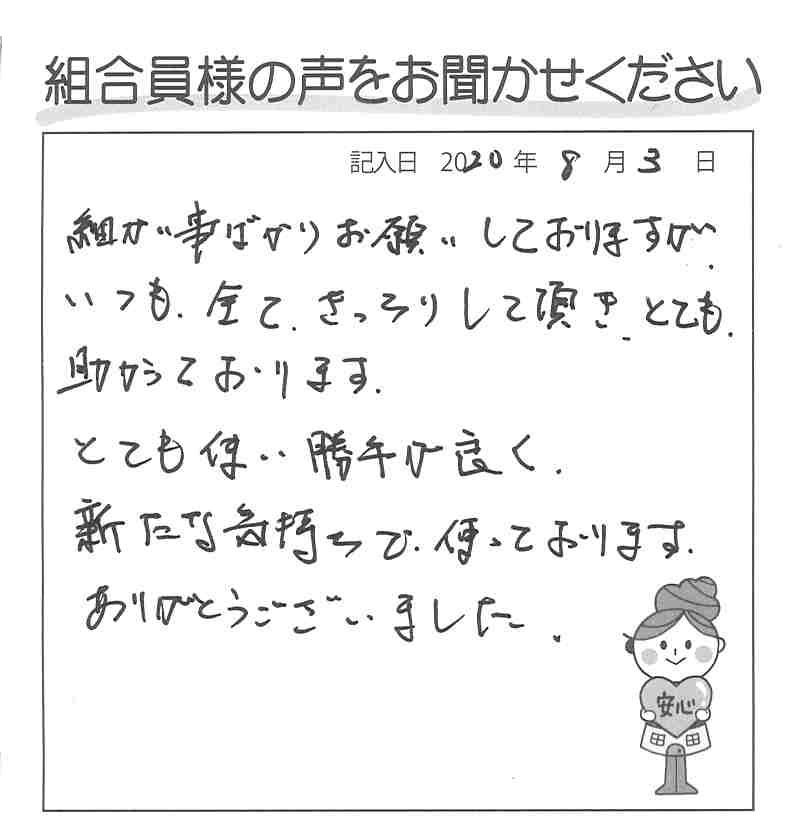 組合員様の声をお聞かせください
記入日 2020年 8月 3日
細かい事ばかりお願いしておりますが、
いつも、全て、きっちりして頂き、とても、
助かっております。
とても使い勝手が良く、
新たな気持ちで、使っております。
ありがとうございました。
安心